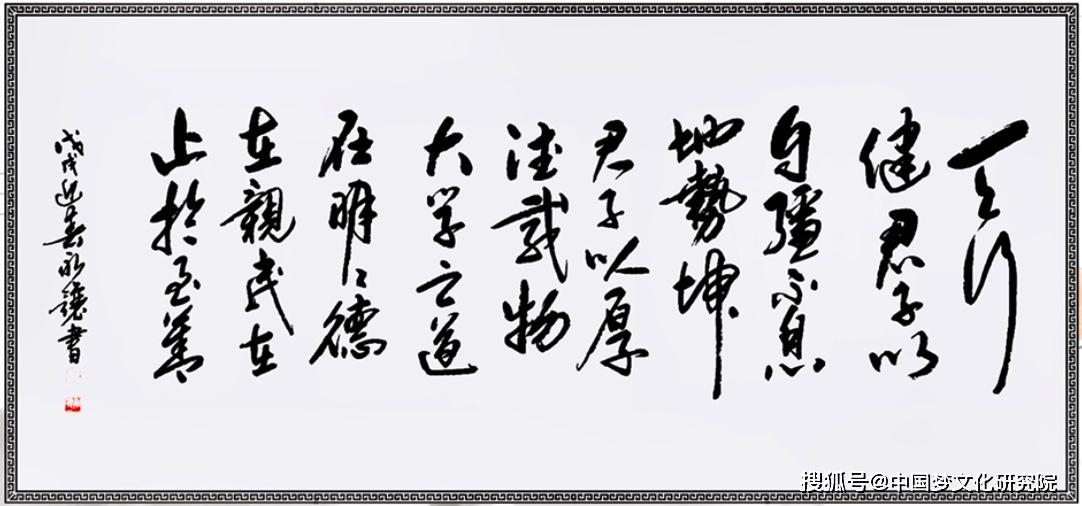 天行
健君子以
自强不息
地勢坤
君子以厚
德載物
大学之道
在明明德
在親民在
止於至善
戊戌迎春永讓書
搜狐号@中国梦文化研究院